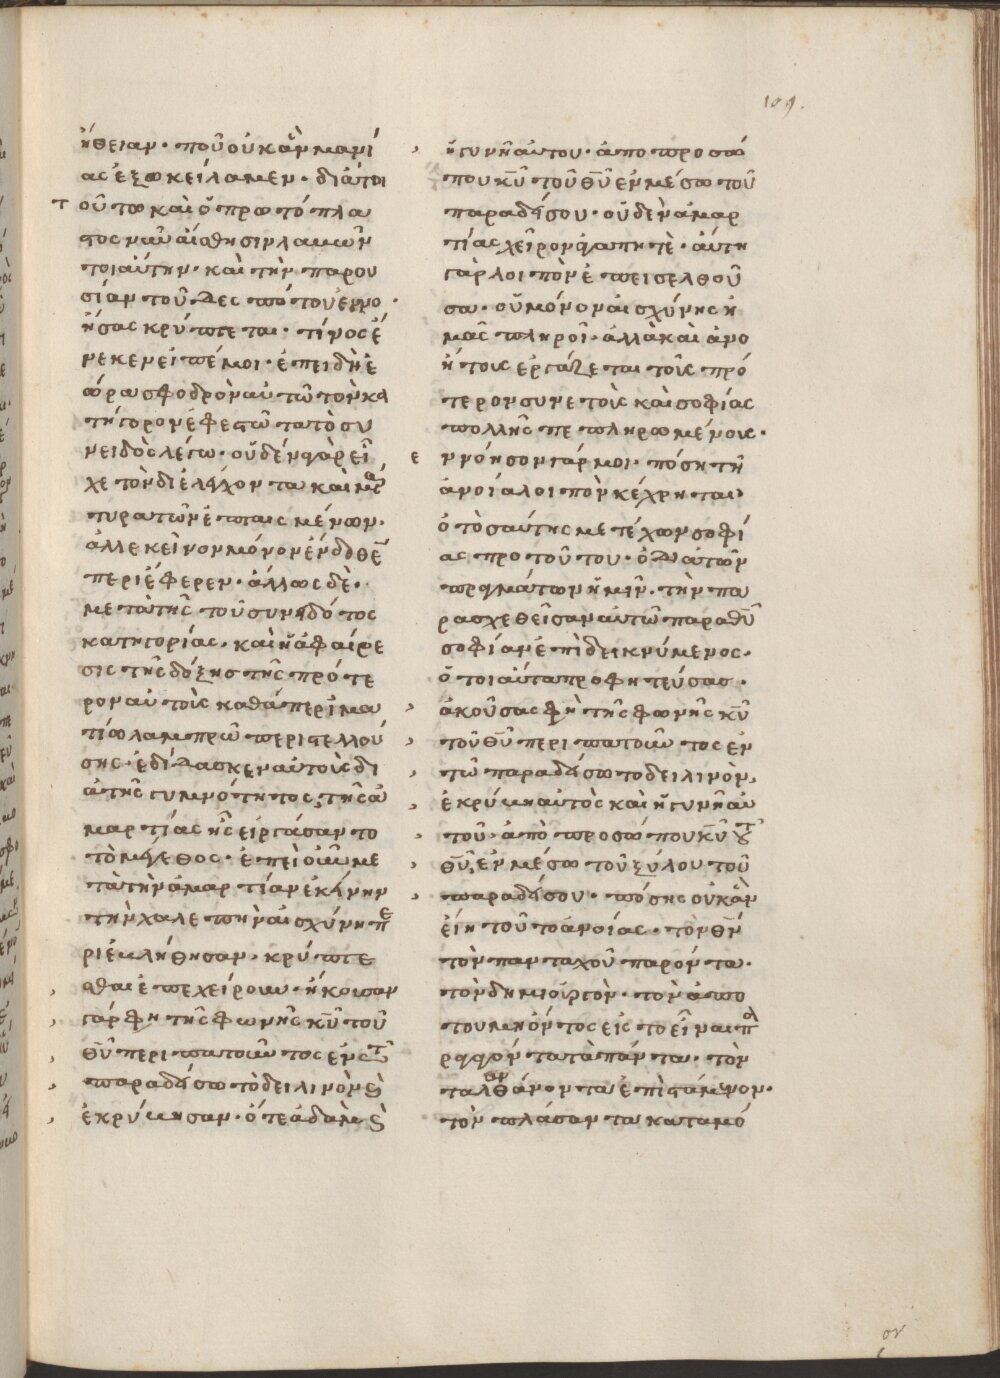 109.
ήθειαν· ποῦ οὐκ ἂν μανί
ας ἐξωκείλαμεν· διάτοι
τ οῦτο καὶ ὁ πρωτόπλα
στος νῦν αἴσθησιν λαμὼν
τοιαύτην· καὶ τὴν παρου
σίαν τοῦ δεσπότου ἐννο
ήσας κρύπτεται· τίνος ἕ
νεκεν εἰπέ μοι· ἐπειδὴ ἑ
ώρα σφοδρὸν αὐτῶ τὸν κα
τήγορον ἐφεστῶτα τὸ συ
νειδὸς λέγω· οὐδένα γὰρ εἶ
χε τὸν διελέγχοντα καὶ μαρ
τυρα τῶν ἐπταισμένων·
ἀλλ' ἐκεῖνον μόνον ἔνδοθεν
περιέφερεν· ἄλλως δὲ·
μετὰ τῆς τοῦ συνειδότος
κατηγορίας· καὶ ἡ ἀφαίρε
σις τῆς δόξης τῆς πρότε
ρον αὐτοὺς καθάπερ ἱμα
τίω λαμπρῶ περιστελλού
σης· ἐδίδασκεν αὐτοὺς δι
ὰ τῆς γυμνότητος, τῆς ἁ
μαρτίας ἧς εἰργάσαντο
τὸ μέγεθος· ἐπεὶ οὖν με
τὰ τὴν ἁμαρτίαν ἐκείνην
τὴν χαλεπὴν αἰσχύνη πε
ριεβλήθησαν· κρύπτε
σθαι ἐπεχείρουν· ἤκουσαν
γάρ φη τῆς φωνῆς κῦ τοῦ
θῦ περιπατοῦντος ἐν τῶ
παραδείσω τὸ δειλινὸν καὶ
ἐκρύβησαν· ὅ τε ἀδὰμ καὶ
ἡ γυνὴ αὐτοῦ· ἀπὸ προσώ
που κῦ τοῦ θῦ ἐν μέσω τοῦ
παραδείσου· οὐδὲν ἁμαρ
τίας χεῖρον ἀγαπητὲ· αὕτη
γὰρ λοιπὸν ἐπεισελθοῦ
σα· οὐ μόνον αἰσχύνης ἡ
μᾶς πληροῖ· ἀλλὰ καὶ ἀνο
ήτους ἐργάζεται τοὺς πρό
τερον συνετοὺς καὶ σοφίας
πολλῆς πεπληρωμένους·
ε ννόησον γάρ μοι· πόση τῆ
ἀνοία λοιπὸν κέχρηται
ὁ τοσαύτης μετέχων σοφί
ας πρὸ τούτου· ὁ διὰ τῶν
πραγμάτων ἡμῖν· τὴν πα
ρασχεθεῖσαν αὐτῶ παρὰ θῦ
σοφίαν ἐπιδεικνύμενος·
ὁ τοιαῦτα προφητεύσας·
ἀκούσας φὴ τῆς φωνῆς κῦ
τοῦ θῦ περιπατοῦντος ἐν
τῶ παραδείσω το δειλινὸν,
ἐκρύβη αὐτὸς καὶ ἡ γυνὴ αὐ
τοῦ· ἀπὸ προσώπου κῦ τοῦ
θῦ, ἐν μέσω τοῦ ξύλου τοῦ
παραδείσου· πόσης οὐκ ἂν
εἴη τοῦτο ἀνοίας· τὸν θν
τὸν πανταχοῦ παρόντα·
τὸν δημιουργὸν· τὸν ἀπὸ
τοῦ μὴ ὄντος εἰς τὸ εἶναι πα
ραγαγόντα τὰ πάντα· τὸν
τα λανθάνοντα ἐπιστάμενον·
τὸν πλάσαντα καταμό
ον